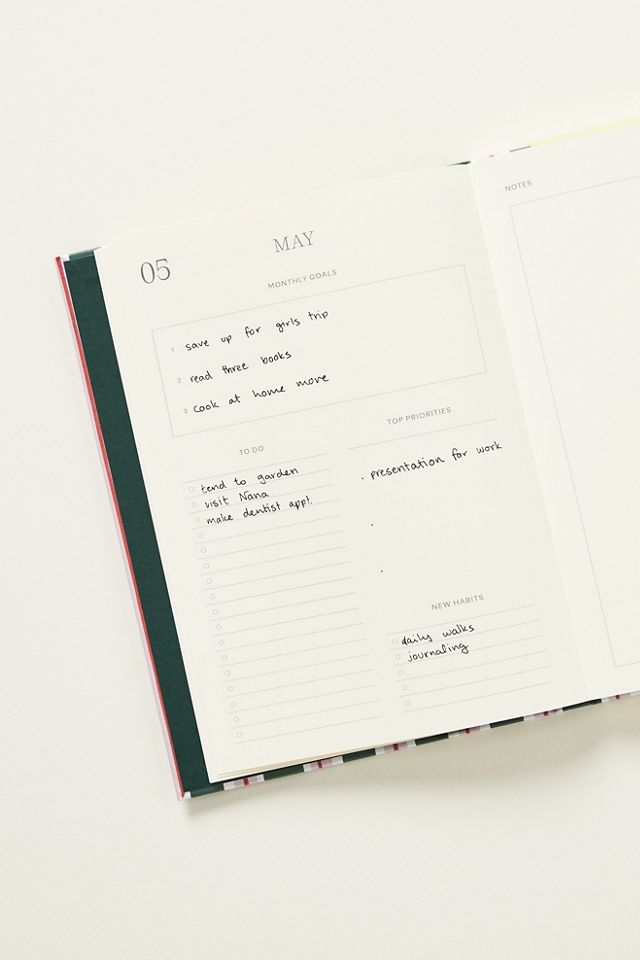 05
MAY
MONTHLY GOALS
1 save up for girls trip
2 read three books
3 cook at home more
TO DO
tend to garden
visit Nana
make dentist appt.
TOP PRIORITIES
· presentation for work
·
·
NEW HABITS
daily walks
journaling
NOTES